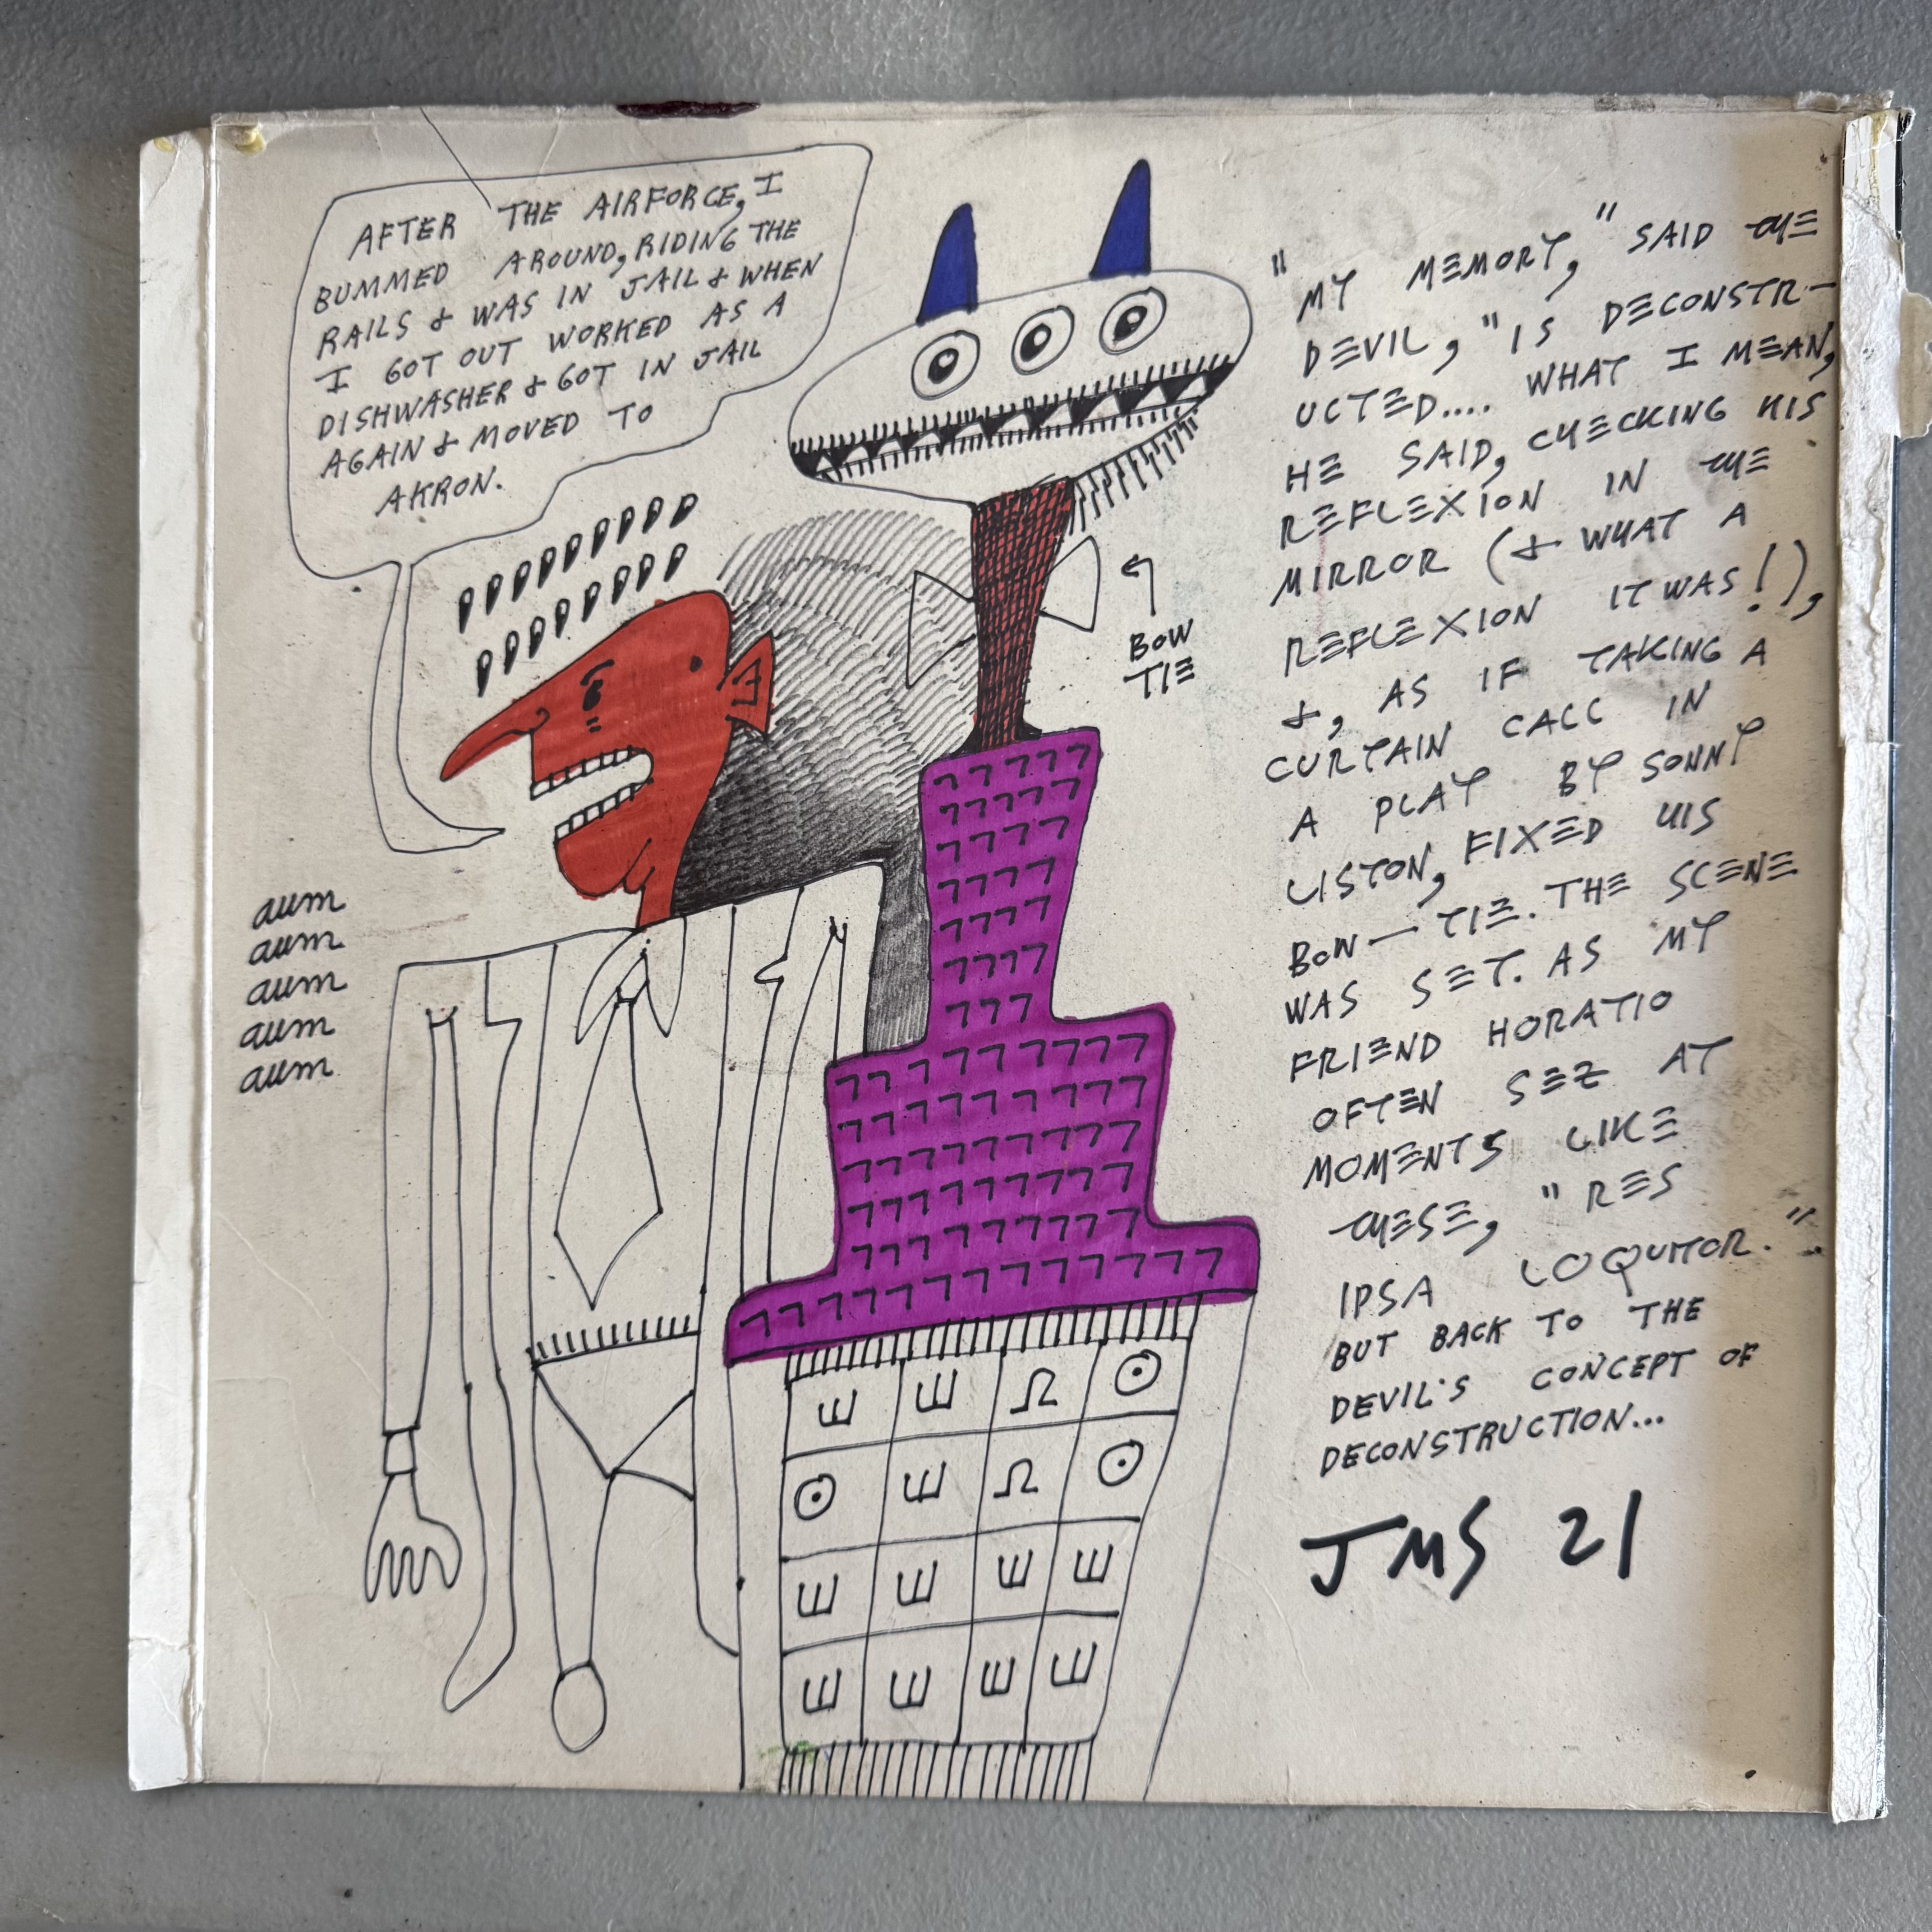 AFTER THE AIRFORCE, I
BUMMED AROUND, RIDING THE
RAILS & WAS IN JAIL & WHEN
I GOT OUT WORKED AS A
DISHWASHER & GOT IN JAIL
AGAIN & MOVED TO
AKRON.
BOW
TIE
aum
aum
aum
aum
aum
"MY MEMORY," SAID THE
DEVIL, "IS DECONSTR-
UCTED.... WHAT I MEAN,
HE SAID, CHECKING HIS
REFLEXION IN THE
MIRROR (& WHAT A
REFLEXION IT WAS!),
&, AS IF TAKING A
CURTAIN CALL IN
A PLAY BY SONNY
LISTON, FIXED HIS
BOW-TIE. THE SCENE
WAS SET. AS MY
FRIEND HORATIO
OFTEN SEZ AT
MOMENTS LIKE
THESE, "RES
IPSA LOQUITOR."
BUT BACK TO THE
DEVIL'S CONCEPT OF
DECONSTRUCTION...
JMS 21
E E Ω ⊙
⊙ E Ω ⊙
E E E E
E E E E